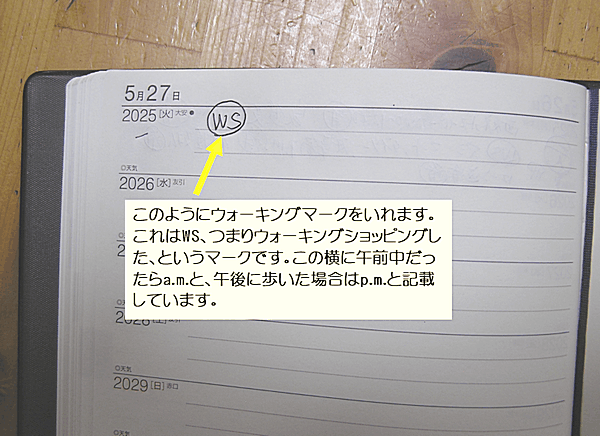 5月27日
2025[火]大安●
WS
◎天気
2026[水]友引
このようにウォーキングマークをいれます。
これはWS、つまりウォーキングショッピングし
た、というマークです。この横に午前中だっ
たらa.m.と、午後に歩いた場合はp.m.と記載
しています。
◎天気
2029[日]赤口
◎天気